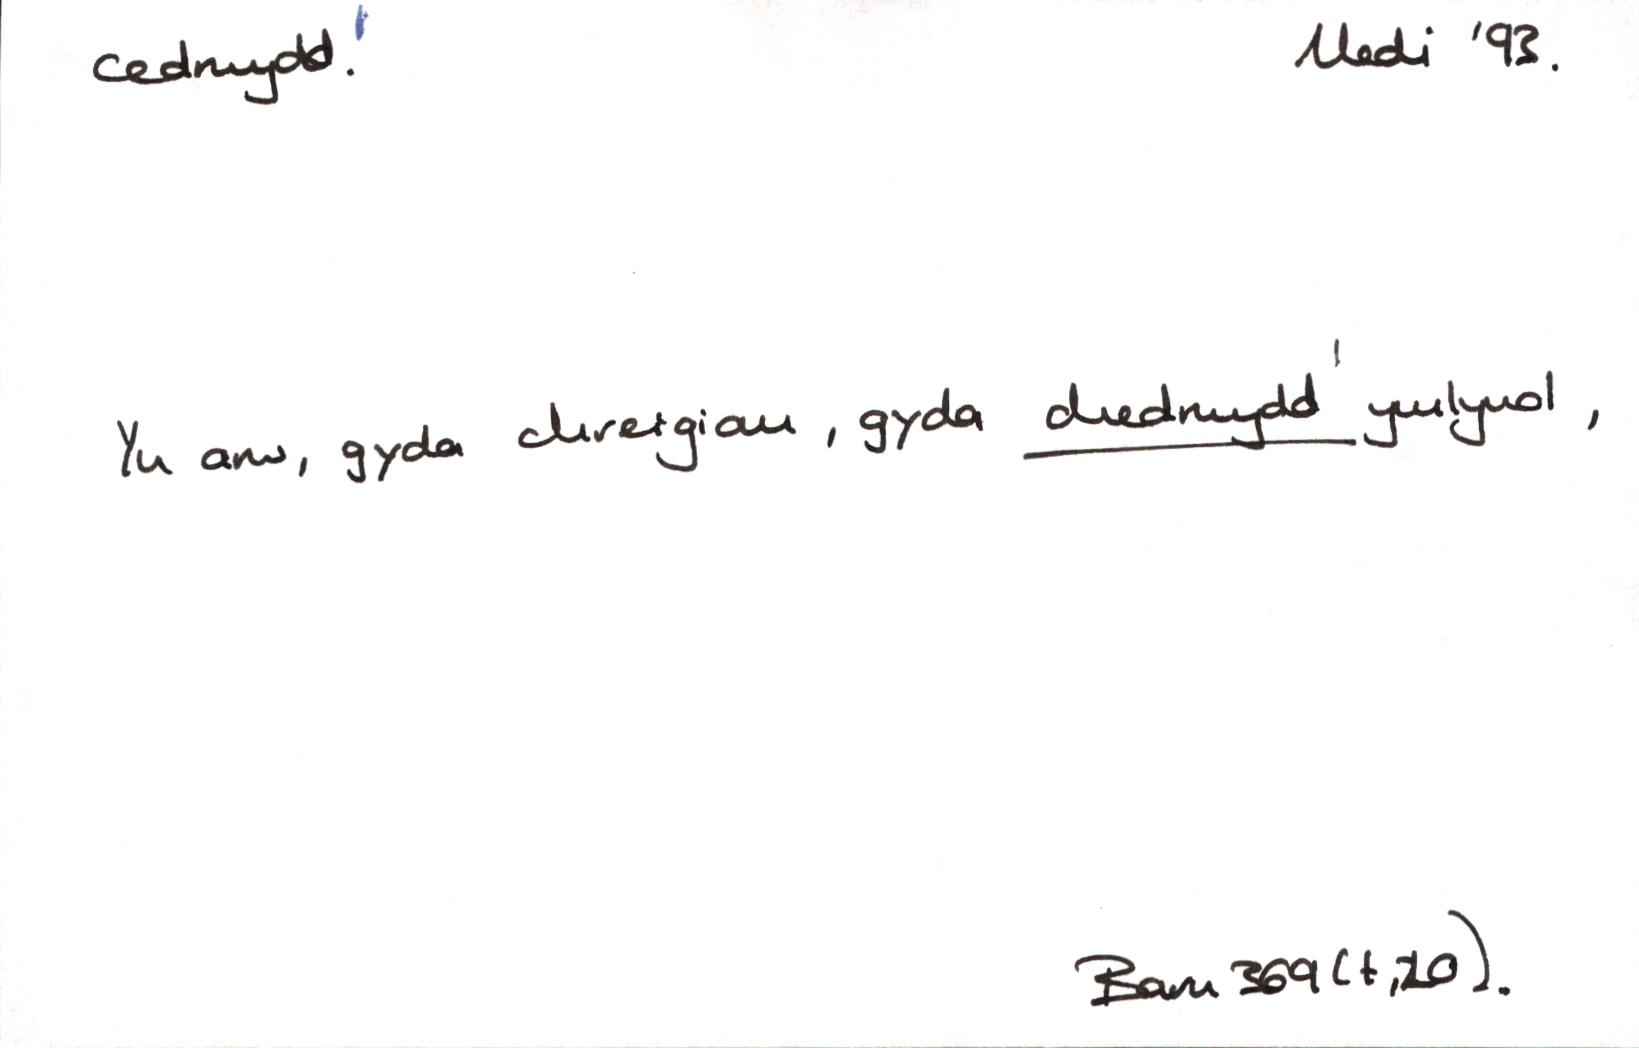 cednwydd.¹ Medi '93.
Yn arw, gyda chreigiau, gyda chednwydd¹ ymlynol,
Barn 369 (t,20).